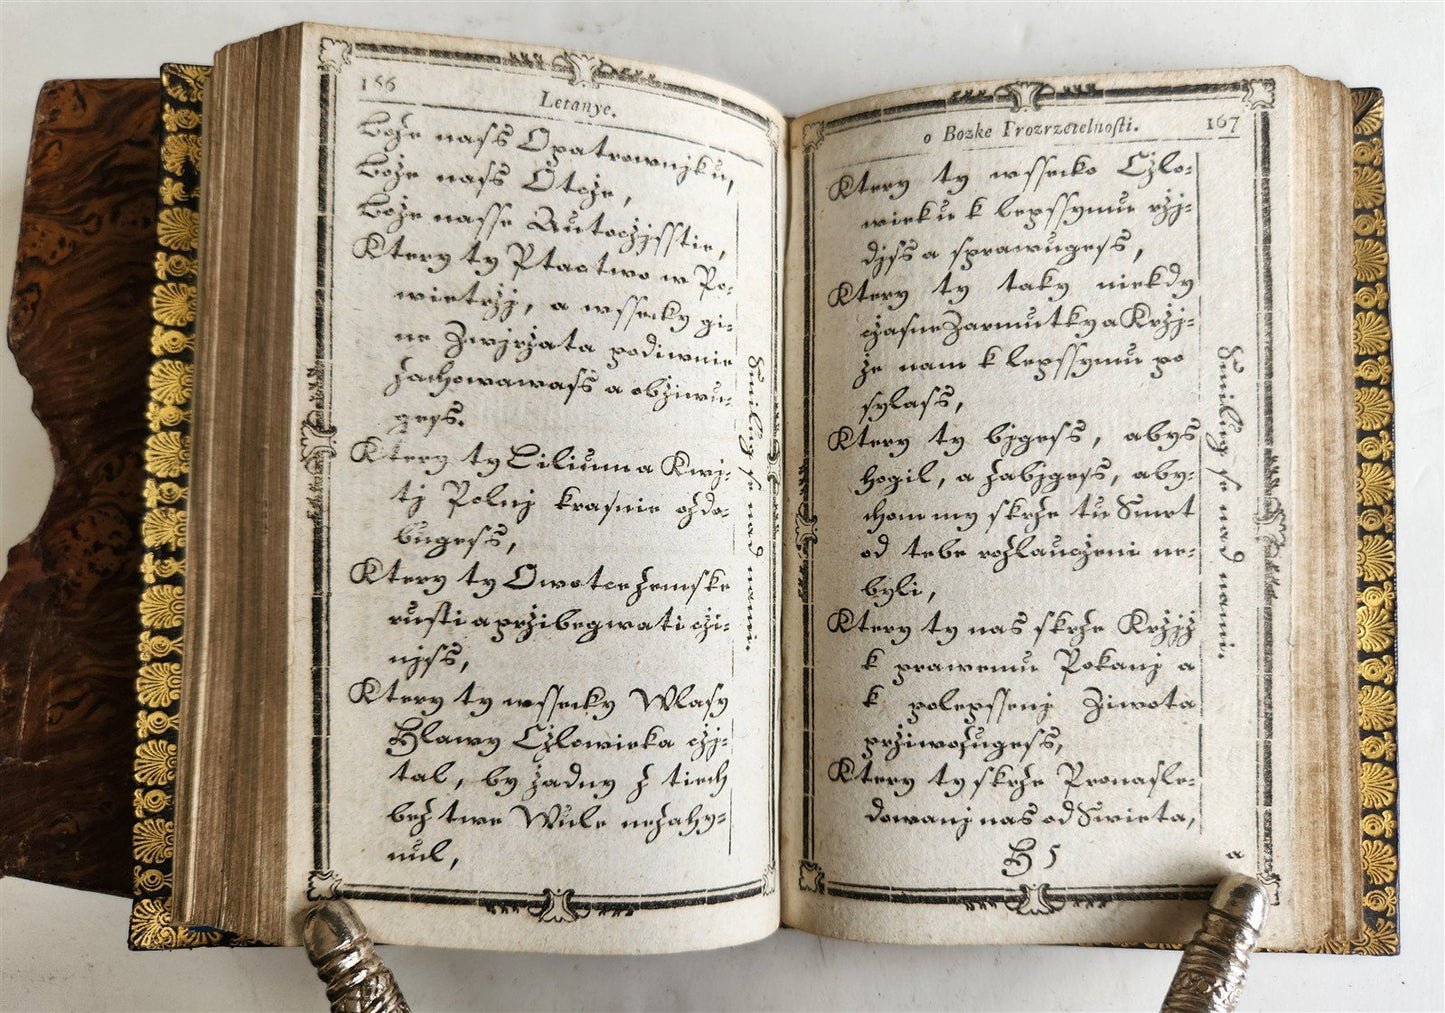 166
Letanye.
Bože nass Opatrownjku,
Bože nass Otcže,
Bože nasse Autocžjsstie,
Ktery ty Ptactwo w Po-
wietržj, a wssecky gi-
ne Zwjržata podiwnie
zachowawass a obžiwu-
gess.
Ktery ty Lilium a Kwj-
tj Polnj krasnie ozdo-
bugess,
Ktery ty Owotce zemske
rusti a pržibegwati cži-
njss,
Ktery ty wssecky Wlasy
Hlawy Cžlowieka cžj-
tal, by žadny z tiech
bez twe Wule nezahy-
nul,
Smilug se nad nami.
o Bozke Prozrzetelnosti.
167
Ktery ty wssecko Cžlo-
wieku k lepssymu ržj-
djss a sprawugess,
Ktery ty taky niekdy
cžasne Zarmutky a Kržj-
že nam k lepssymu po
sylass,
Ktery ty bjgess, abys
hogil, a zabjgess, aby-
chom my skrže tu Smrt
od tebe rozlaucženi ne-
byli,
Ktery ty nas skrže Kržjž
k prawemu Pokanj a
k polepssenj Ziwota
pržiwozugess,
Ktery ty skrže Pronasle-
dowanj nas od Swieta,
Smilug se nad nami.
H 5
a